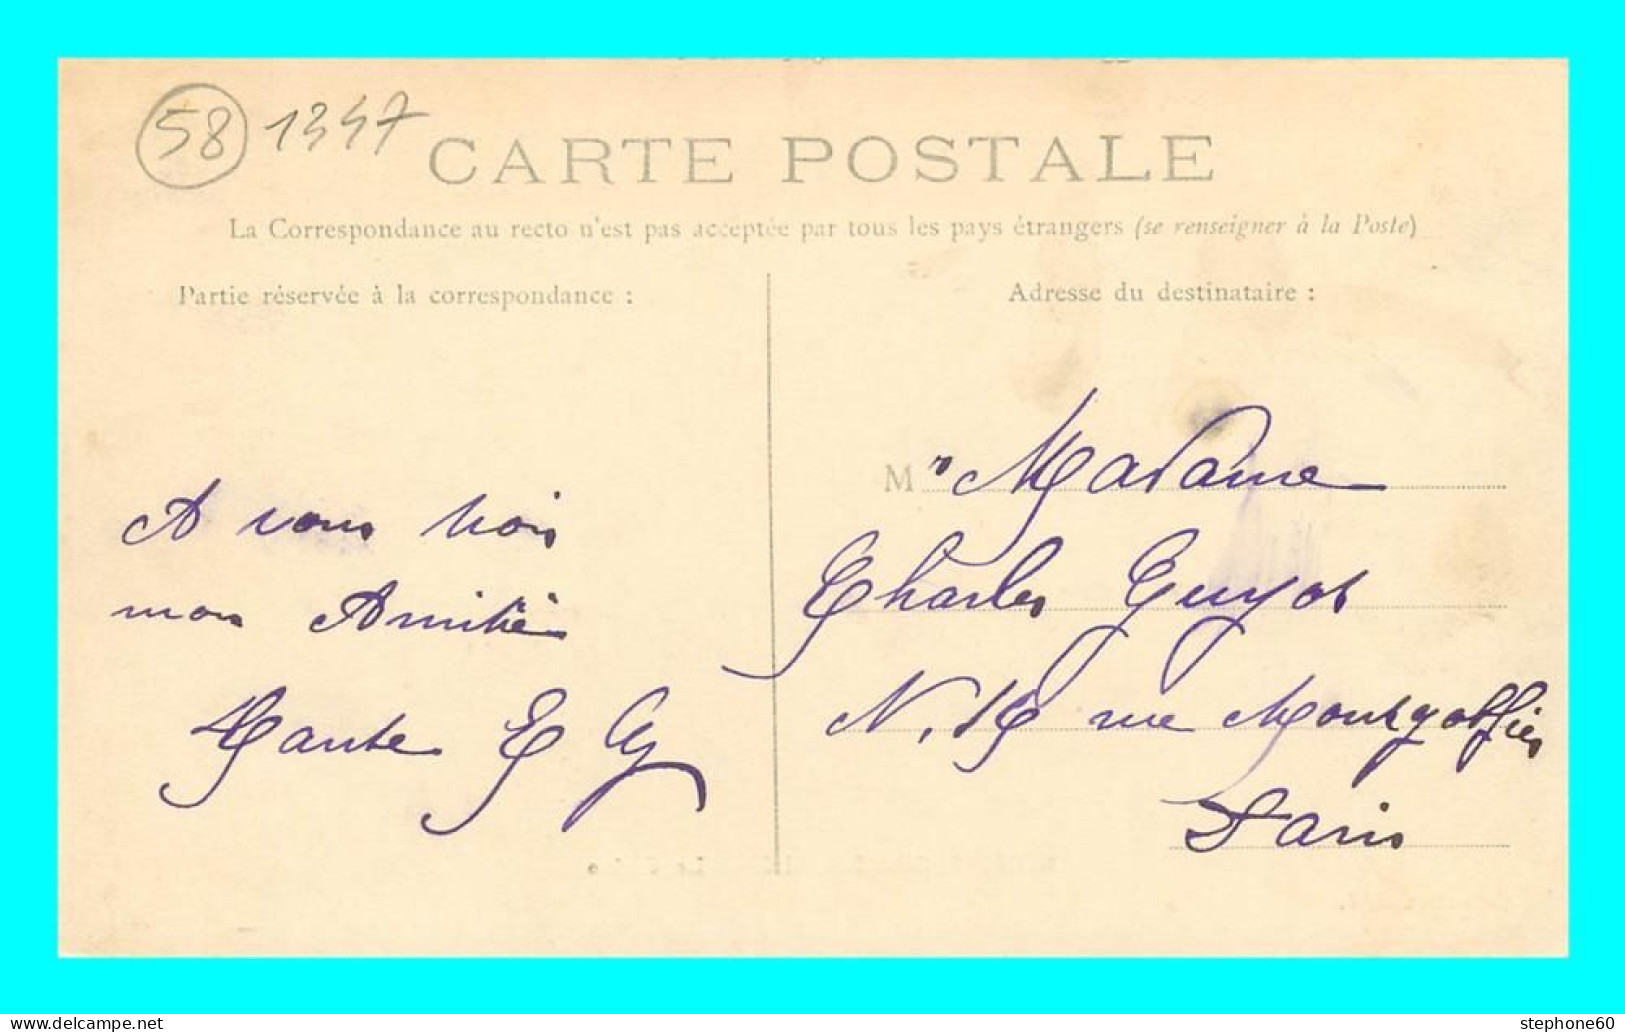 58 1347
CARTE POSTALE
La Correspondance au recto n'est pas acceptée par tous les pays étrangers (se renseigner à la Poste)
Partie réservée à la correspondance :
Adresse du destinataire :
A vous trois
mon Amitié
M Madame
Charles Guyot
N. 19 rue Montgolfier
Paris
www.delcampe.net
stephone60